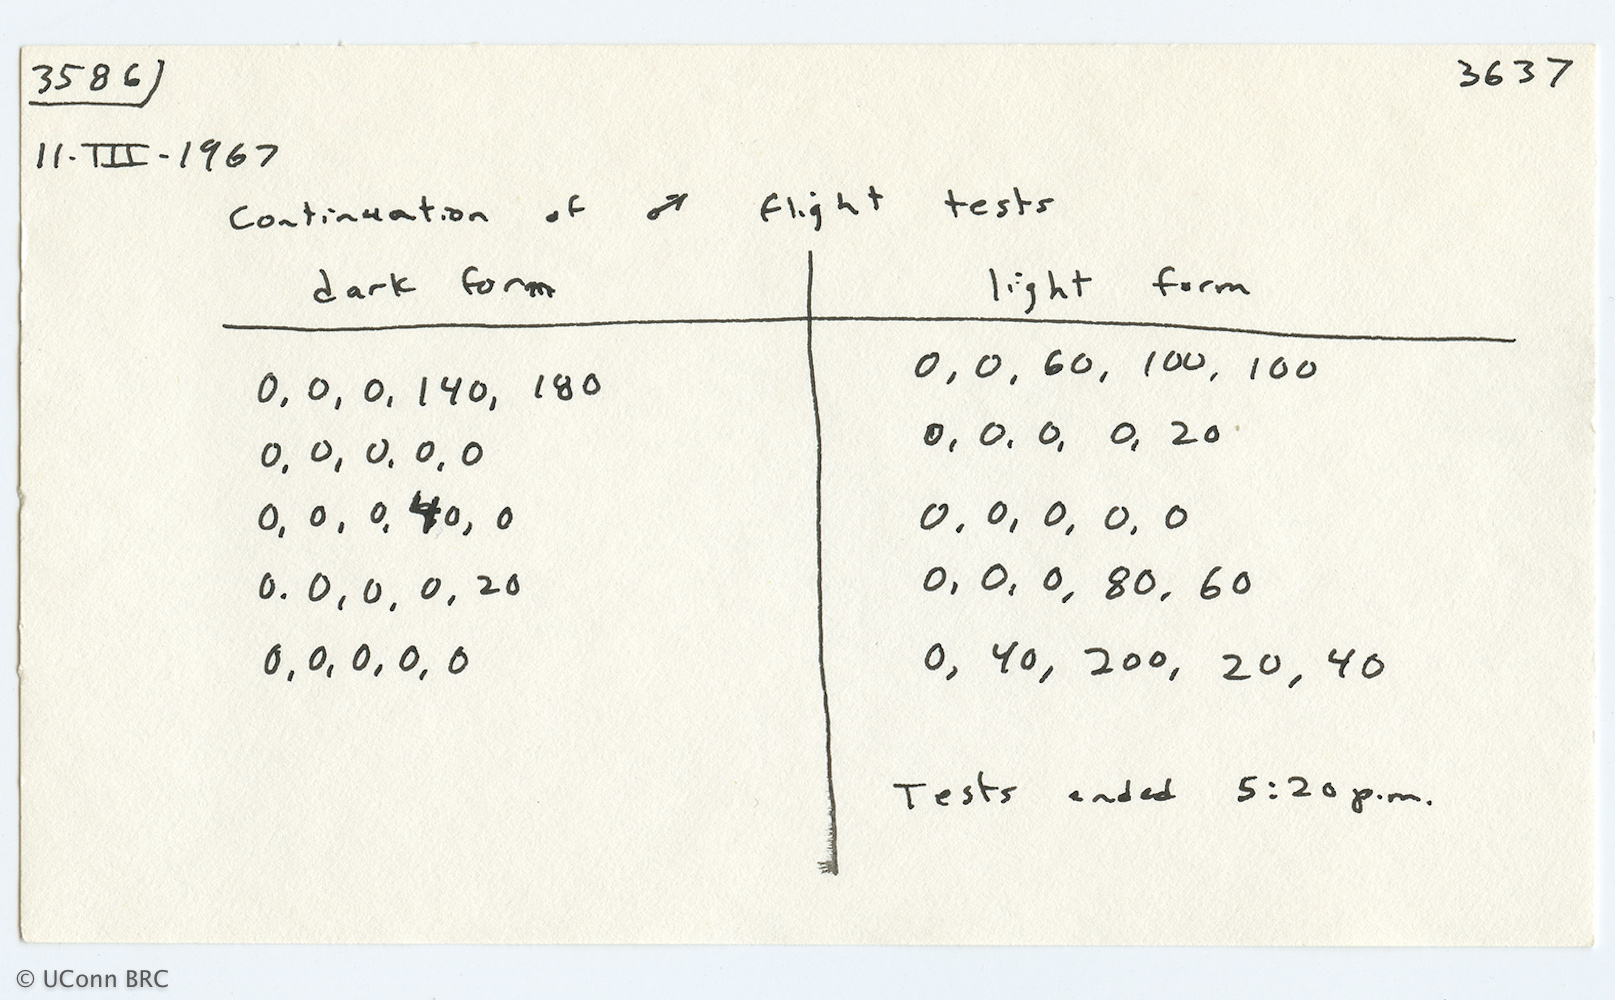 3586) 3637
11-III-1967
Continuation of ♂ flight tests
dark form light form
0, 0, 0, 140, 180
0, 0, 0, 0, 0
0, 0, 0, 40, 0
0. 0, 0, 0, 20
0, 0, 0, 0, 0
0, 0, 60, 100, 100
0, 0. 0, 0, 20
0, 0, 0, 0, 0
0, 0, 0, 80, 60
0, 40, 200, 20, 40
Tests ended 5:20 p.m.
© UConn BRC